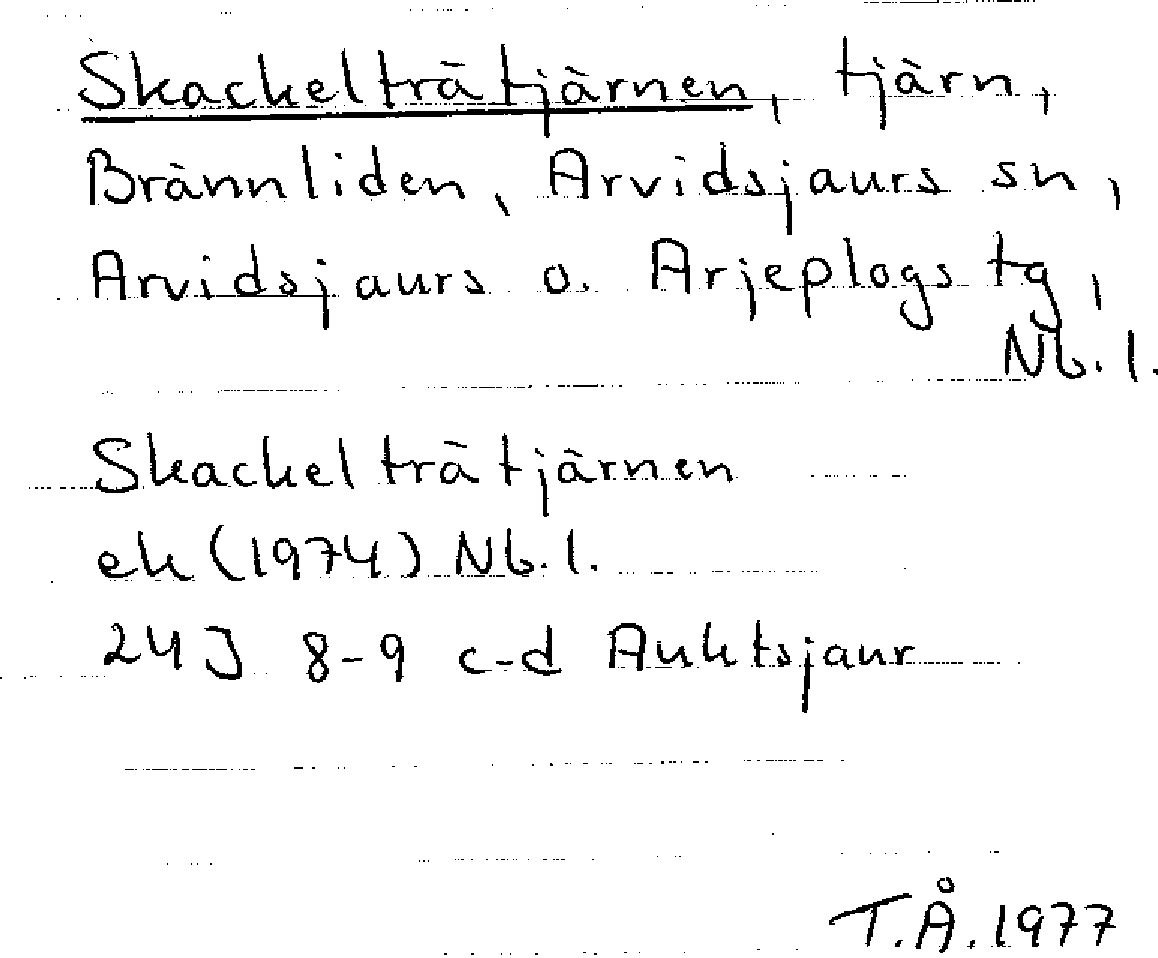 Skackelträtjärnen, tjärn,
Brännliden, Arvidsjaurs sn,
Arvidsjaurs o. Arjeplogs tg,
Nb. l.
Skackelträtjärnen
ek (1974) Nb. l.
24J 8-9 c-d Auktsjaur
T.Å. 1977